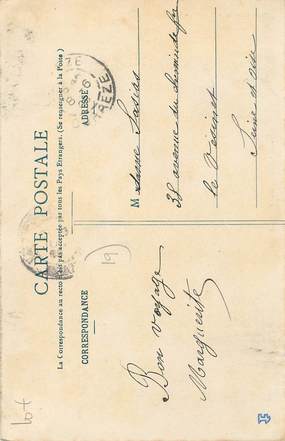 CARTE POSTALE
La Correspondance au recto n'est pas acceptée par tous les Pays Etrangers. (Se renseigner à la Poste)
CORRESPONDANCE
ADRESSE
Bon voyage
Marguerite
M
38 avenue du chemin de fer
le Vésinet
Seine et Oise
19
lot